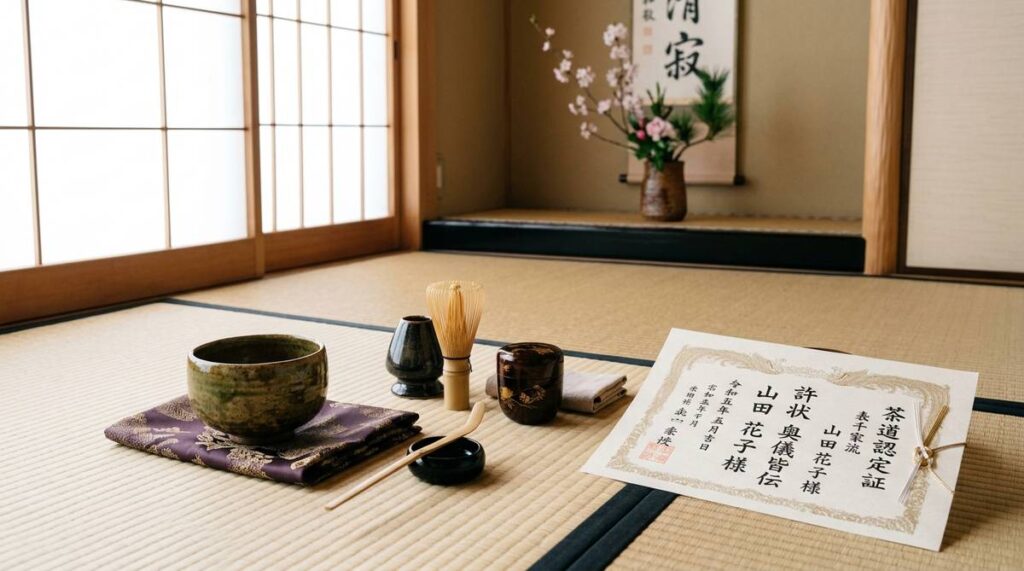 清寂
茶道認定証
表千家流
山田花子様
許状奥儀皆伝
山田 花子 様
令和五年五月吉日